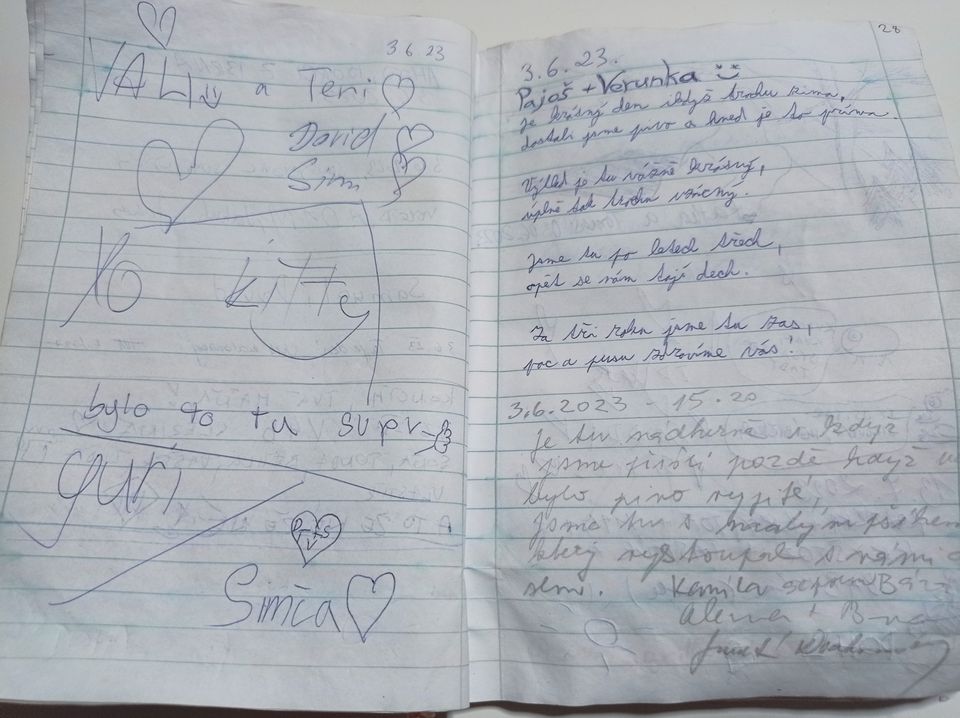 3 6 23
VALI a Teri
David
Simi
Yo kitte
bylo to tu supr
yuri
P+S
Simča
28
3.6.23.
Pajoš + Verunka
Je krásný den i když trochu zima,
dostali jsme pivo a hned je to príma.
Výhled je tu vážně krásný,
úplně tak trochu vzácný.
Jsme tu po letech třech,
opět se nám tají dech.
Za tři roku jsme tu zas,
pac a pusu zdravíme vás!
3.6.2023 - 15.20
Je tu nádherně i když
jsme přišli pozdě když
bylo pivo vypité,
Jsme tu s malým
který vystoupal s námi
sem. Kamila
Alena